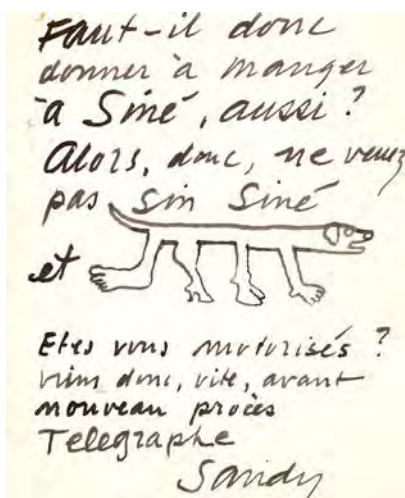 Faut-il donc
donner à manger
à Siné, aussi ?
Alors, donc, ne venez
pas sin Siné
et
Etes vous motorisés ?
viens donc, vite, avant
nouveau procès
Telegraphe
Sandy